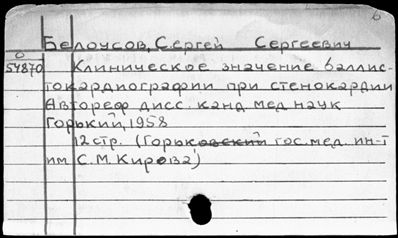 б
Белоусов, Сергей Сергеевич
0
54870
Клиническое значение баллис-
токардиографии при стенокардии
Автореф дисс. канд мед наук
Горький, 1958
12 стр. (Горьковский гос. мед. ин-т
им С.М. Кирова)